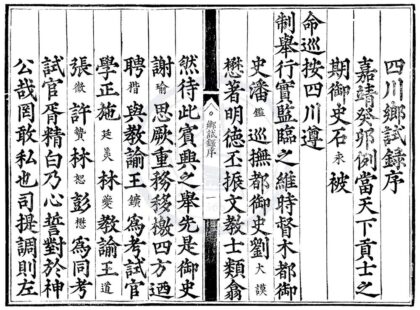 四川鄉試錄序
嘉靖癸卯例當天下貢士之
期御史石永被
命巡按四川遵
制舉行實監臨之維時督木都御
史潘鑑巡撫都御史劉大謨
懋著明德丕振文教士類翕
鄉試錄序
一
然待此賓興之舉先是御史
謝瑜思厥重務移檄四方迺
聘楷與教諭王鑛為考試官
學正施廷炎林燮教諭王道
張微許龔林恕彭懋為同考
試官胥精白乃心誓對於神
公哉罔敢私也司提調則左